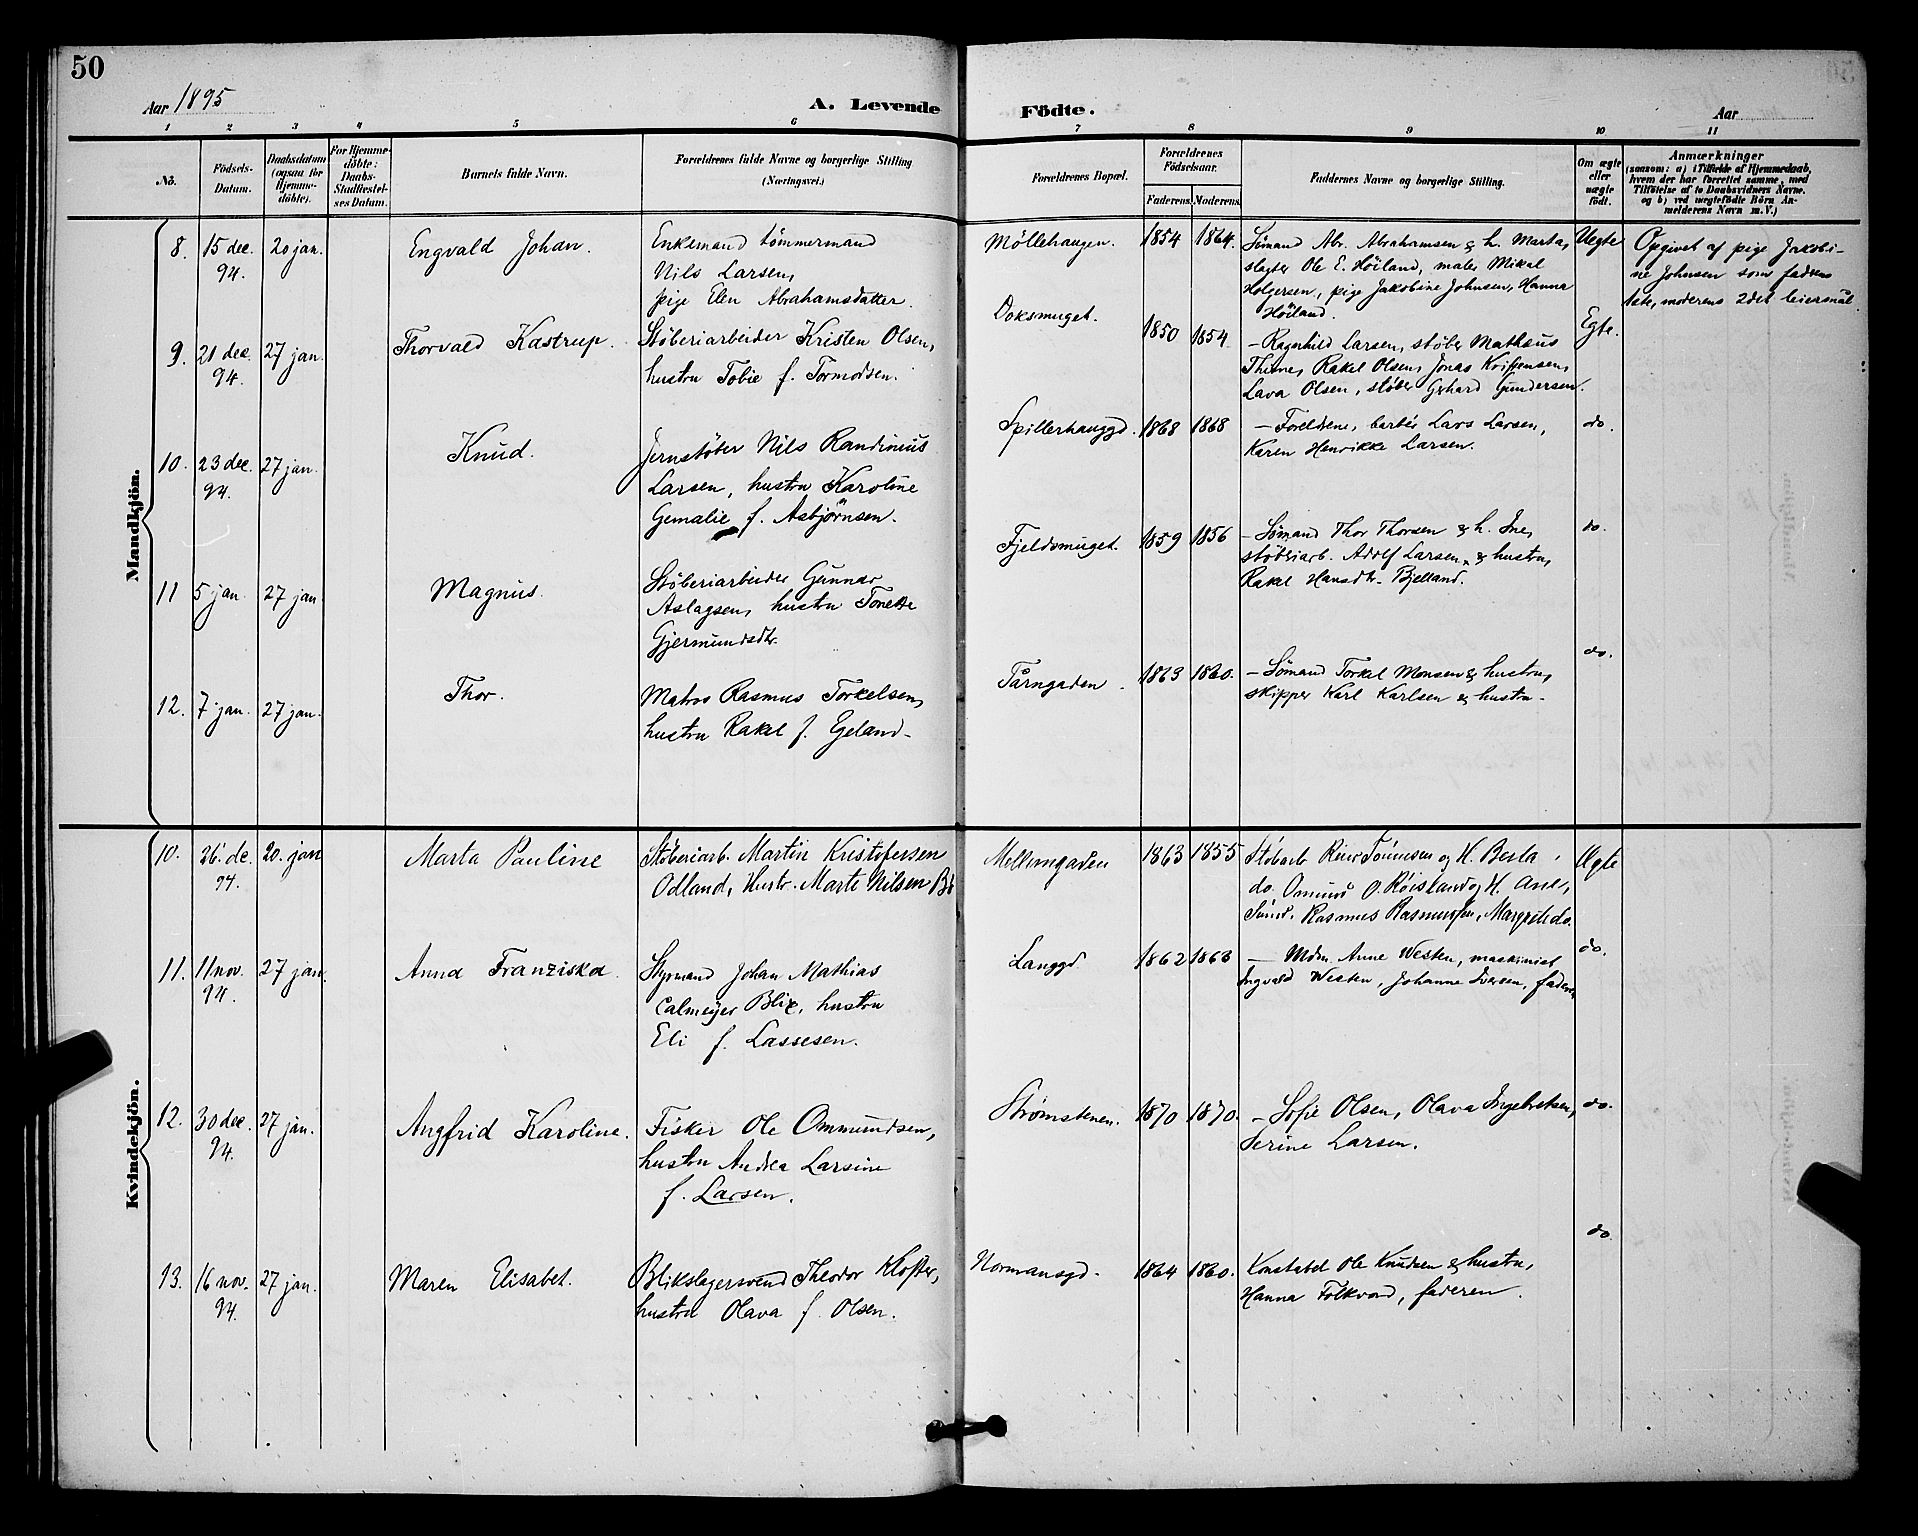 50
Aar 1895
A. Levende Födte.
Aar
1 2 3 4 5 6 7 8 9 10 11
No.
Födsels-
Datum.
Daabsdatum
(ogsaa for
Hjemme-
döbte).
For Hjemme-
döbte:
Daabs-
Stadfæstel-
ses Datum.
Barnets fulde Navn.
Forældrenes fulde Navne og borgerlige Stilling
(Næringsvei.)
Forældrenes Bopæl.
Forældrenes
Födselsaar.
Faderens. Moderens.
Faddernes Navne og borgerlige Stilling.
Om ægte
eller
uægte
født.
Anmærkninger
(saasom: a) i Tilfælde af Hjemmedaab,
hvem der har forrettet samme, med
Tilföielse af to Daabsvidners Navne.
og b) ved uægtefödte Börn An-
melderens Navn m.V.)
Mandkjön.
8. 15 dec. 94. 20 jan. Engvald Johan.
Enkemand tömmermand
Nils Larsen,
pige Elen Abrahamsdatter.
Möllehaugen. 1854 1864.
Sömand Abr. Abrahamsen & h. Marta,
slagter Ole E. Höiland, maler Mikal
Holgersen, pige Jakobine Johnsen, Hanna
Höiland.
Uegte
Opgivet af pige Jakobi-
ne Johnsen som fadders
moderens 2det leiersmål
9. 21 dec. 94. 27 jan. Thorvald Kastrup.
Støberiarbeider Kristen Olsen,
hustru Tobie f. Tormodsen.
Doksmuget. 1850 1854.
- Ragnhild Larsen, støber Mathæus
Rakel Olsen, Jonas
Lava Olsen, støber Gerhard Gundersen.
Egte.
10. 23 dec. 94. 27 jan. Knud.
Jernstøber Nils Randinius
Larsen, hustru Karoline
Gemalie f. Asbjørnsen.
Spillerhauggd. 1868 1868
- Foreldrene, barbér Lars Larsen,
Karen Henrikke Larsen.
do.
11 5 jan. 27 jan Magnus.
Støberiarbeider Gunnar
Aslagsen, hustru Tonette
Gjermundsdtr.
Fjeldsmuget. 1859 1856
- Sömand Thor Thorsen & h. Ine,
støberiarb. Adolf Larsen & hustru,
Rakel Hansdtr. Bjelland.
do.
12. 7 jan. 27 jan. Thor.
Matros Rasmus Torkelsen,
hustru Rakel f. Egeland-
Tårngaden. 1863 1860.
- Sömand Torkel Monsen & hustru,
skipper Karl Karlsen & hustru-
do.
Kvindekjön.
10. 26 de. 94. 20. jan Marta Pauline
Støberiarb. Martin Kristofersen
Odland, Hustr. Marte Nilsen
Mellemgaden 1863 1855
Stöbarb og H. Berta,
do. Omund O. Röisland og H. Ane,
Rasmus Rasmussen, Margrete do.
Ægte
11. 11 nov. 94. 27 jan. Anna Franziska.
Styrmand Johan Mathias
Calmeyer Blix, hustru
Eli f. Lassesen.
Langgd. 1862 1863
- Mdm. Anne Westen, maskinist
Ingvald Westen, Johanne Iversen, faderen
do.
12. 30 dec. 94. 27 jan. Angfrid Karoline.
Fisker Ole Ommundsen,
hustru Andrea Larsine
f. Larsen.
Strømstenen. 1870 1870.
- Sofie Olsen, Olava Ingebretsen,
Serine Larsen.
do.
13. 16 nov. 94. 27 jan. Maren Elisabet.
Blikslagersvend Theodor Kloster,
hustru Olava f. Olsen.
Normansgd. 1864 1860.
Konstabel Ole Knudsen & hustru,
Hanna Folkvord, faderen.
do.